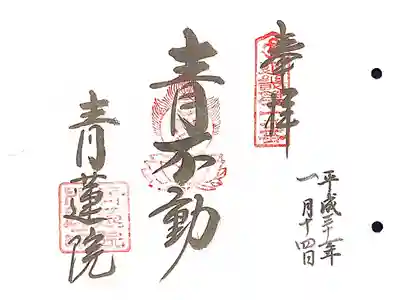 奉拝
平成三十一年
一月十四日
青不動
青蓮院